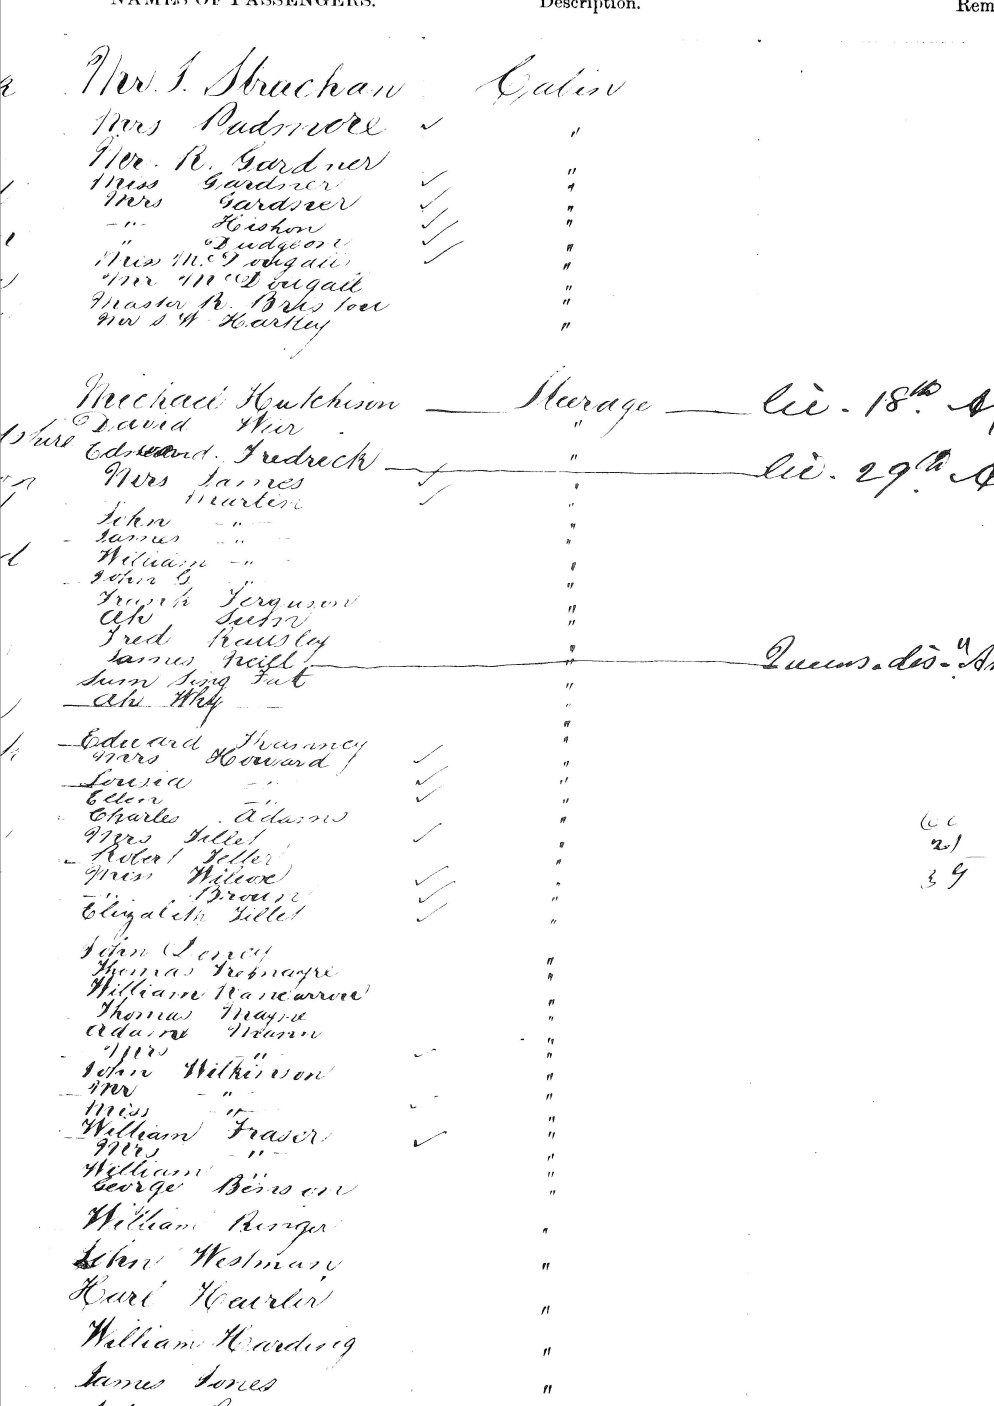 NAMES OF PASSENGERS. Description. Rem
Mr. J. Strachan Cabin
Mrs Padmore "
Mr. R. Gardner "
Miss Gardner "
Mrs Gardner "
" Hishon "
" Dudgeon "
Miss McDougall "
Mr McDougall "
Master R. Bristow "
Mr S. W Hartley "
Michael Hutchison Steerage lic. 18th A
David Weir "
Edward Fredrick " lic. 29th A
Mrs James "
Martin "
John " "
James " "
William " "
John G " "
Frank Ferguson "
Ah Sum "
Fred Rausley "
James Neill " Queens. dis.
Sum Sing Fat "
Ah Why "
Edward "
Mrs Howard "
Lousia " "
Ellen " "
Charles Adams "
Mrs Tillet "
Robert Teller "
Miss Wilcox "
" Brown "
Elizabeth Tillet "
21
39
John "
Thomas Tremayre "
William Nancarrow "
Thomas Mayne "
Adam Mann "
Mrs " "
John Wilkinson "
Mr " "
Miss " "
William Fraser "
Mrs " "
William " "
George Benson "
William Ringer "
John Westman "
Karl "
William Harding "
James Jones "